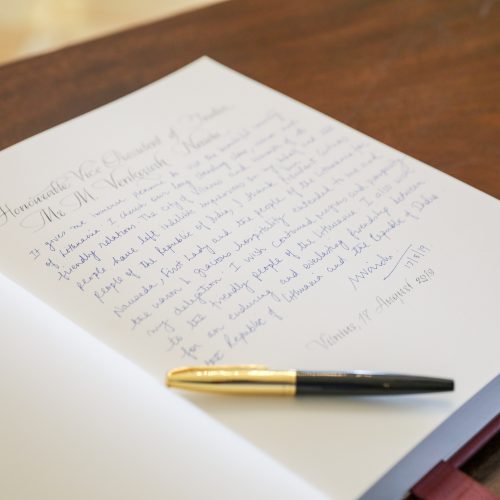 Honourable Vice President of India
Mr. M. Venkaiah Naidu
It gives me immense pleasure to visit the beautiful country
of Lithuania. I cherish our long standing close
friendly relations. The city of Vilnius and warmth of its
people have left indelible impressions on my
people of the Republic of India, I thank President Gitanas
Nauseda, First Lady and the people of the Lithuania for
the warm & gracious hospitality extended to me and
my delegation. I wish continued progress and prosperity
to the friendly people of the Lithuania. I also wish
for an enduring and everlasting friendship between
the Republic of Lithuania and the Republic of India
17/8/19
Vilnius, 17 August 2019